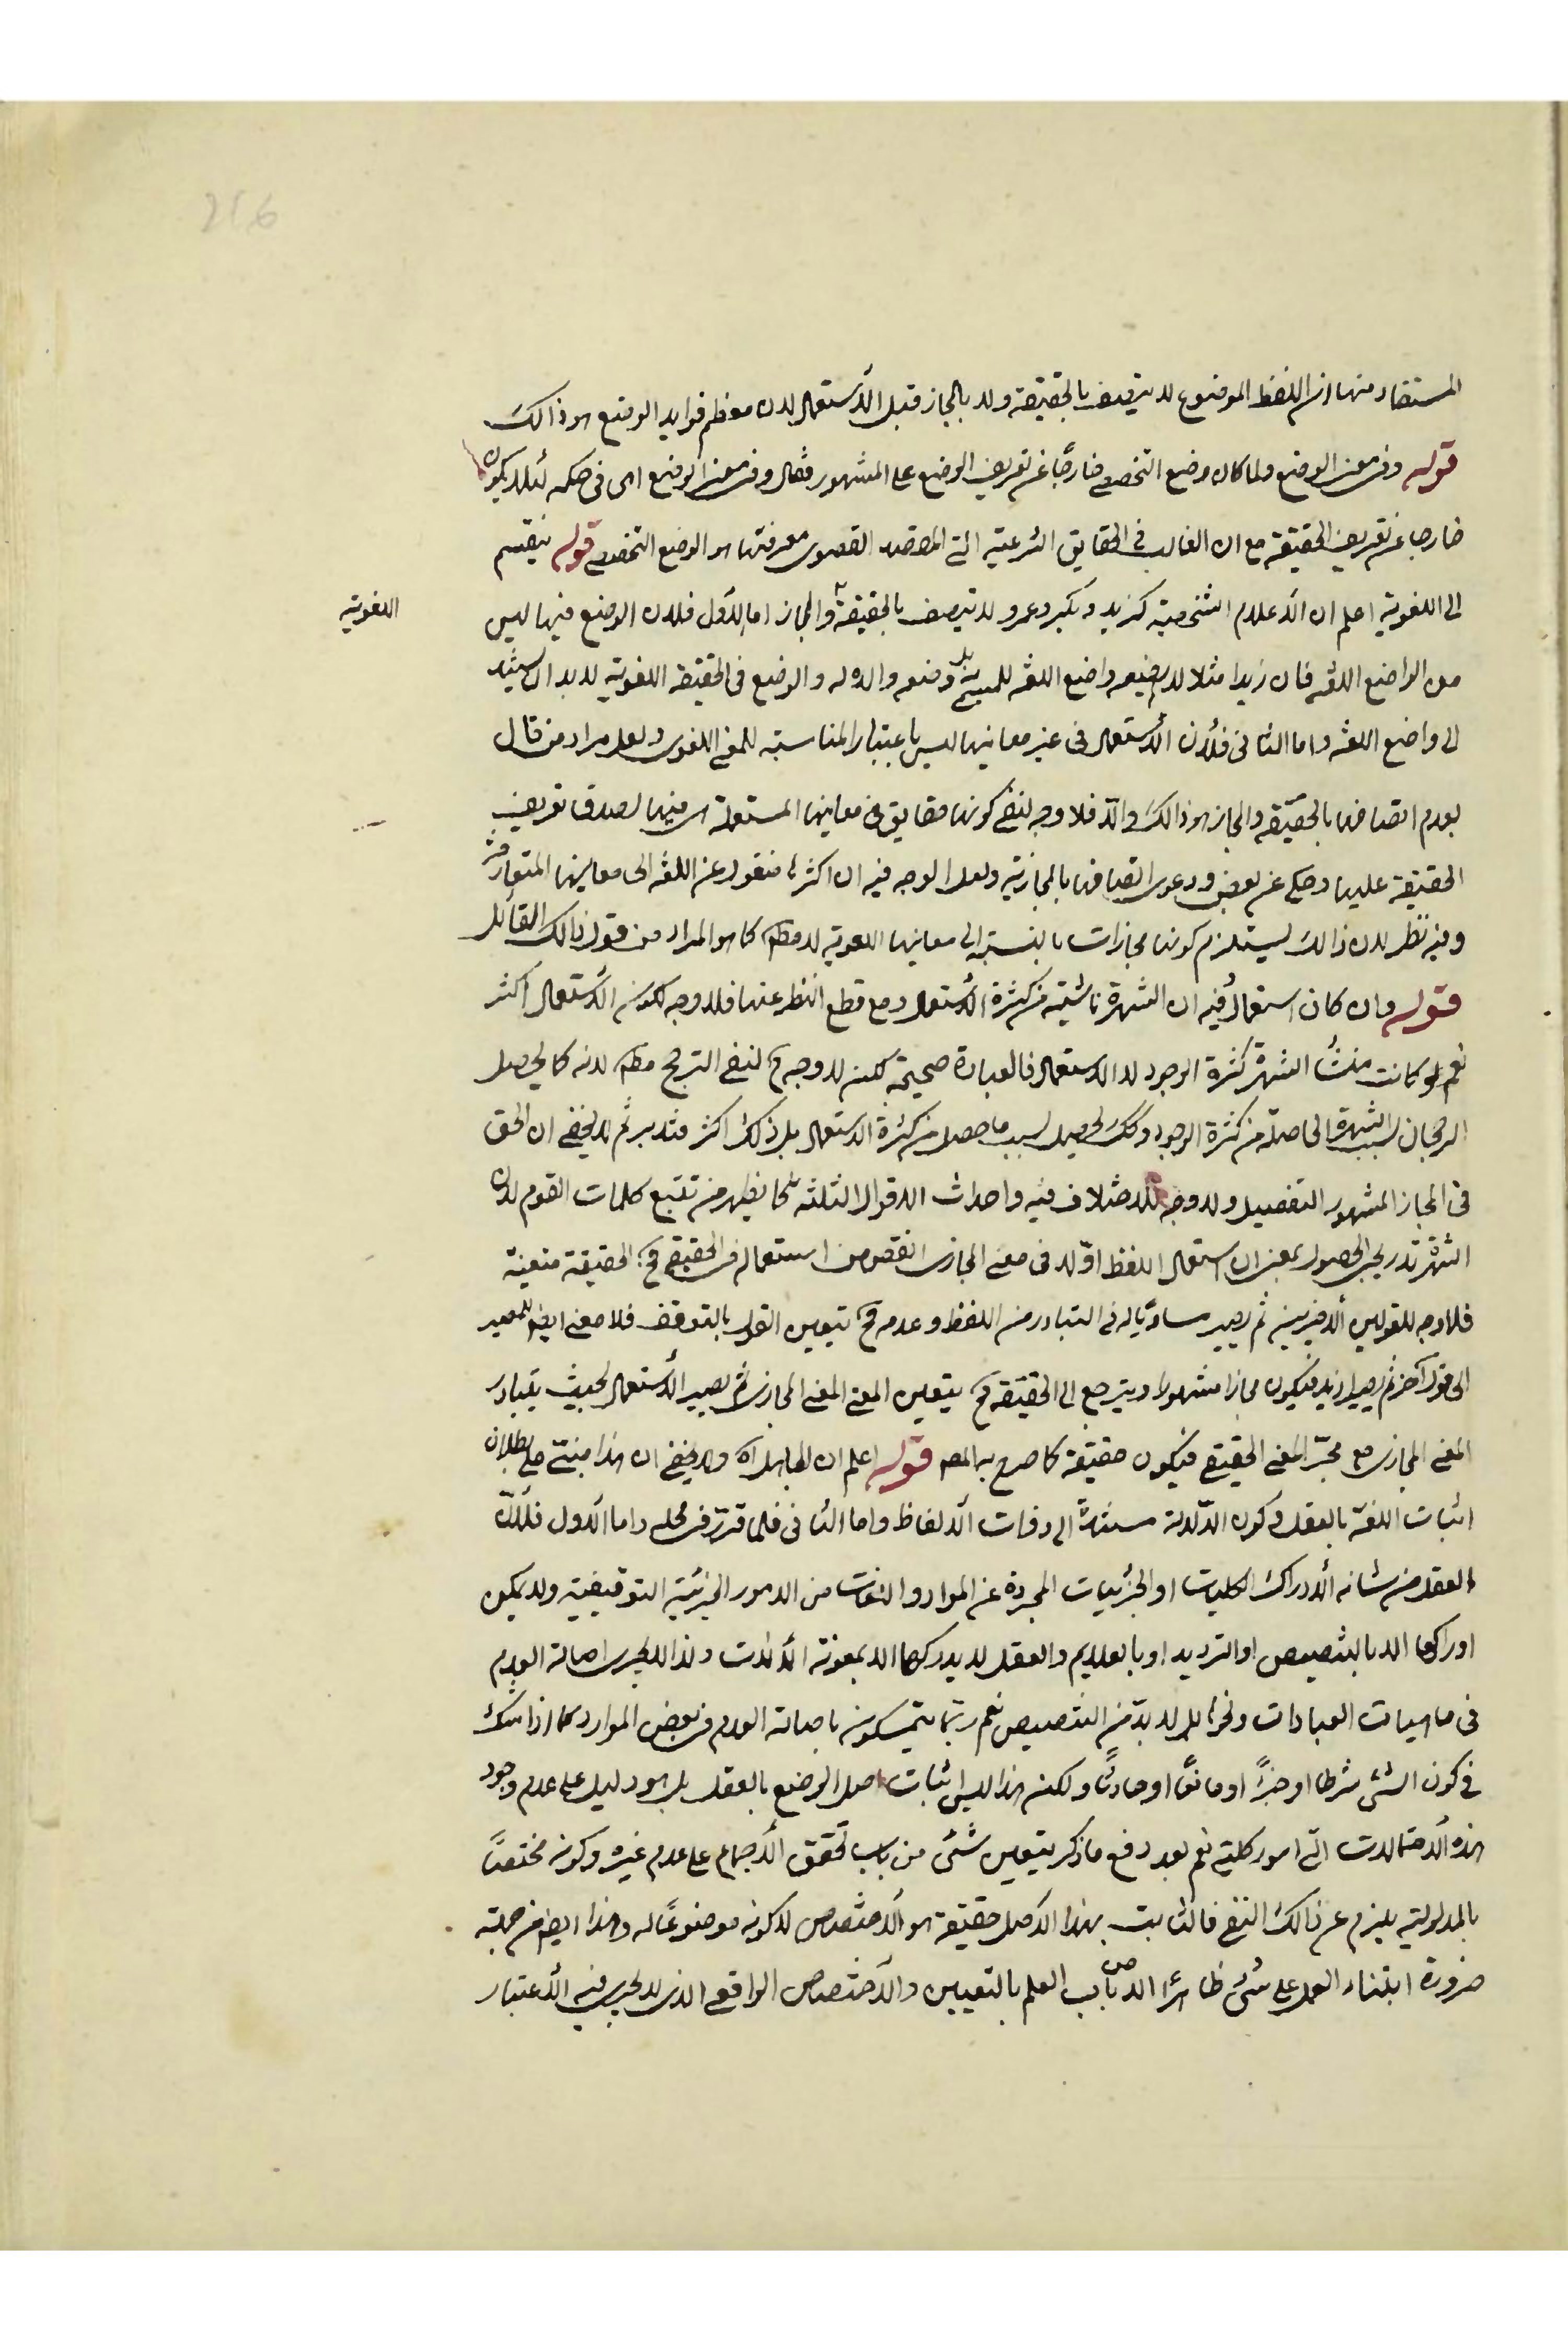 المستفاد منها ان اللفظ الموضوع لا يتصف بالحقيقة ولا بالمجاز قبل الاستعمال لان معظم فوايد الوضع هو ذالك
قوله وفى معنى الوضع ولما كان وضع التخصصى خارجًا عن تعريف الوضع على المشهور فقال وفى معنى الوضع اى فى حكمه لئلا يكون
خارجا عن تعريف الحقيقة مع ان الغالب فى الحقايق الشرعية التى المقصد القصوى معرفتها هو الوضع التخصصى قوله ينقسم
الى اللغوية اعلم ان الاعلام الشخصية كزيد وبكر وعمرو لا تتصف بالحقيقة والمجاز اما الاول فلان الوضع فيها ليس
اللغوية
من الواضع اللغه فان زيدا مثلا لم يضعه واضع اللغه بل وضعه والده له والوضع فى الحقيقة اللغوية لا بد ان يستند
الى واضع اللغه واما الثانى فلان الاستعمال فى غير معانيها ليس باعتبار المناسبته للمعنى اللغوى ولعل مراد من قال
بعدم اتصافها بالحقيقه والمجاز هو ذالك والّا فلا وجه لنفى كونها حقايق فى معانيها المستعملة هى فيها لصدق تعريف
الحقيقة عليها وحكى عن بعض دعوى اتصافها بالمجازية ولعل الوجه فيه ان اكثرها منقول عن اللغه الى معانيها المتعارفة
وفيه نظر لان ذالك يستلزم كونها مجازات بالنسبته الى معانيها اللغوية لا مطلقا كما هو المراد من قول ذالك القائل
قوله وان كان استعمال فيه ان الشهرة ناشئية من كثرة الاستعمال ومع قطع النظر عنها فلا وجه لكونه الاستعمال اكثر
نعم لو كانت منشأ الشهرة كثرة الوجود لا الاستعمال فالعبادة صحيحة لكنه لا وجه ح لنفى الترجيح مطلقا لانه كما يحصل
الرجحان بسبب الشهرة الحاصلة من كثرة الوجود وكك يحصل بسبب ما حصل من كثرة الاستعمال بل ذلك اكثر فتدبر ثم لا يخفى ان الحق
فى المجاز المشهور التفصيل ولا وجه للاختلاف فيه واحداث الاقوال الثلثه كما يظهر من تتبع كلمات القوم لان
الشهرة تدريجى الحصول بمعنى ان استعمال اللفظ اوّلا فى معنى المجازى انقص من استعماله فى الحقيقى فح الحقيقة متعينة
فلا وجه للقولين الاخيرين ثم يصير مساويا له فى التبادر من اللفظ وعدمه فح يتعين القول بالتوقف فلا معنى ايضا للمصير
الى قول آخر ثم يصير ازيد فيكون مجازا مشهورا ويترجح الى الحقيقه فح يتعين المعنى المعنى المجازى ثم يصير الاستعمال بحيث يتبادر
المعنى المجازى مع هجر المعنى الحقيقى فيكون حقيقة كما صرح به المص قوله اعلم ان الجاهل اه ولا يخفى ان هذا مبنى على بطلان
اثبات اللغة بالعقل وكون الدّلالة مستندة الى ذوات الالفاظ واما الثانى فلما قرّر فى محله واما الاول فلأنّ
العقل من شانه الادراك الكليات او الجزئيات المجردة عن المواد واللغات من الامور الجزئية التوقيفية ولا يمكن
ادراكها الا بالتنصيص او الترديد او بالعلايم والعقل لا يدركها الا بمعونة الالات ولذا لا يجرى اصالة العدم
فى ماهيات العبادات ونحوها بل لا بدّ من التنصيص نعم ربّما يتمسكون باصالة العدم فى بعض الموارد كما اذا شك
فى كون الشئ شرطا او جزءً او مانعًا او حادثًا ولكنه هذا ليس اثبات اصل الوضع بالعقل بل هو دليل على عدم وجود
هذه الاحتمالات التى امور كليته نعم بعد دفع ما ذكر يتعين شئ من باب تحقق الاجماع على عدم غيره وكونه مختصًا
بالمدلولية يلزم عن ذالك النفى فالثابت بهذا الاصل حقيقة هو الاختصاص لا كونه موضوعًا له وهذا ايضا من جهته
ضرورة ابتناء العمل على شئ ظاهرًا لا من باب العلم بالتعيين والاختصاص الواقعى الذى لا يجرى فيه الاعتبار